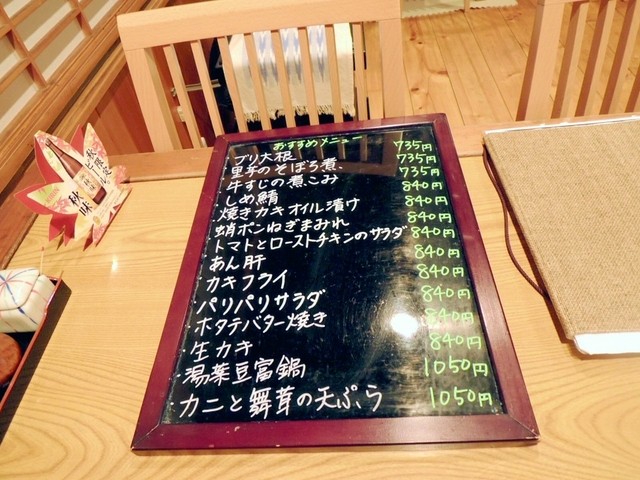 おすすめメニュー
ブリ大根 735円
里芋のそぼろ煮 735円
牛すじの煮こみ 735円
しめ鯖 840円
焼きカキオイル漬け 840円
蛸ポンねぎまみれ 840円
トマトとローストチキンのサラダ 840円
あん肝 840円
カキフライ 840円
パリパリサラダ 840円
ホタテバター焼き 840円
生カキ 840円
湯葉豆富鍋 1050円
カニと舞茸の天ぷら 1050円
秋限定
ビール
秋味